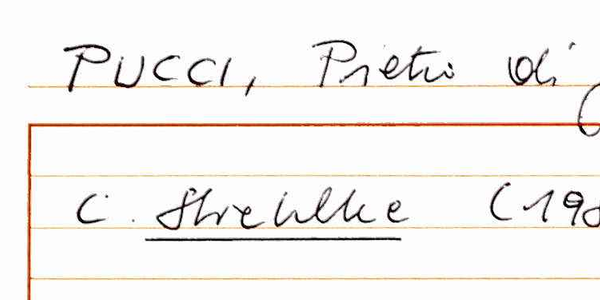 PUCCI, Pietro di
C. Strehlke (198